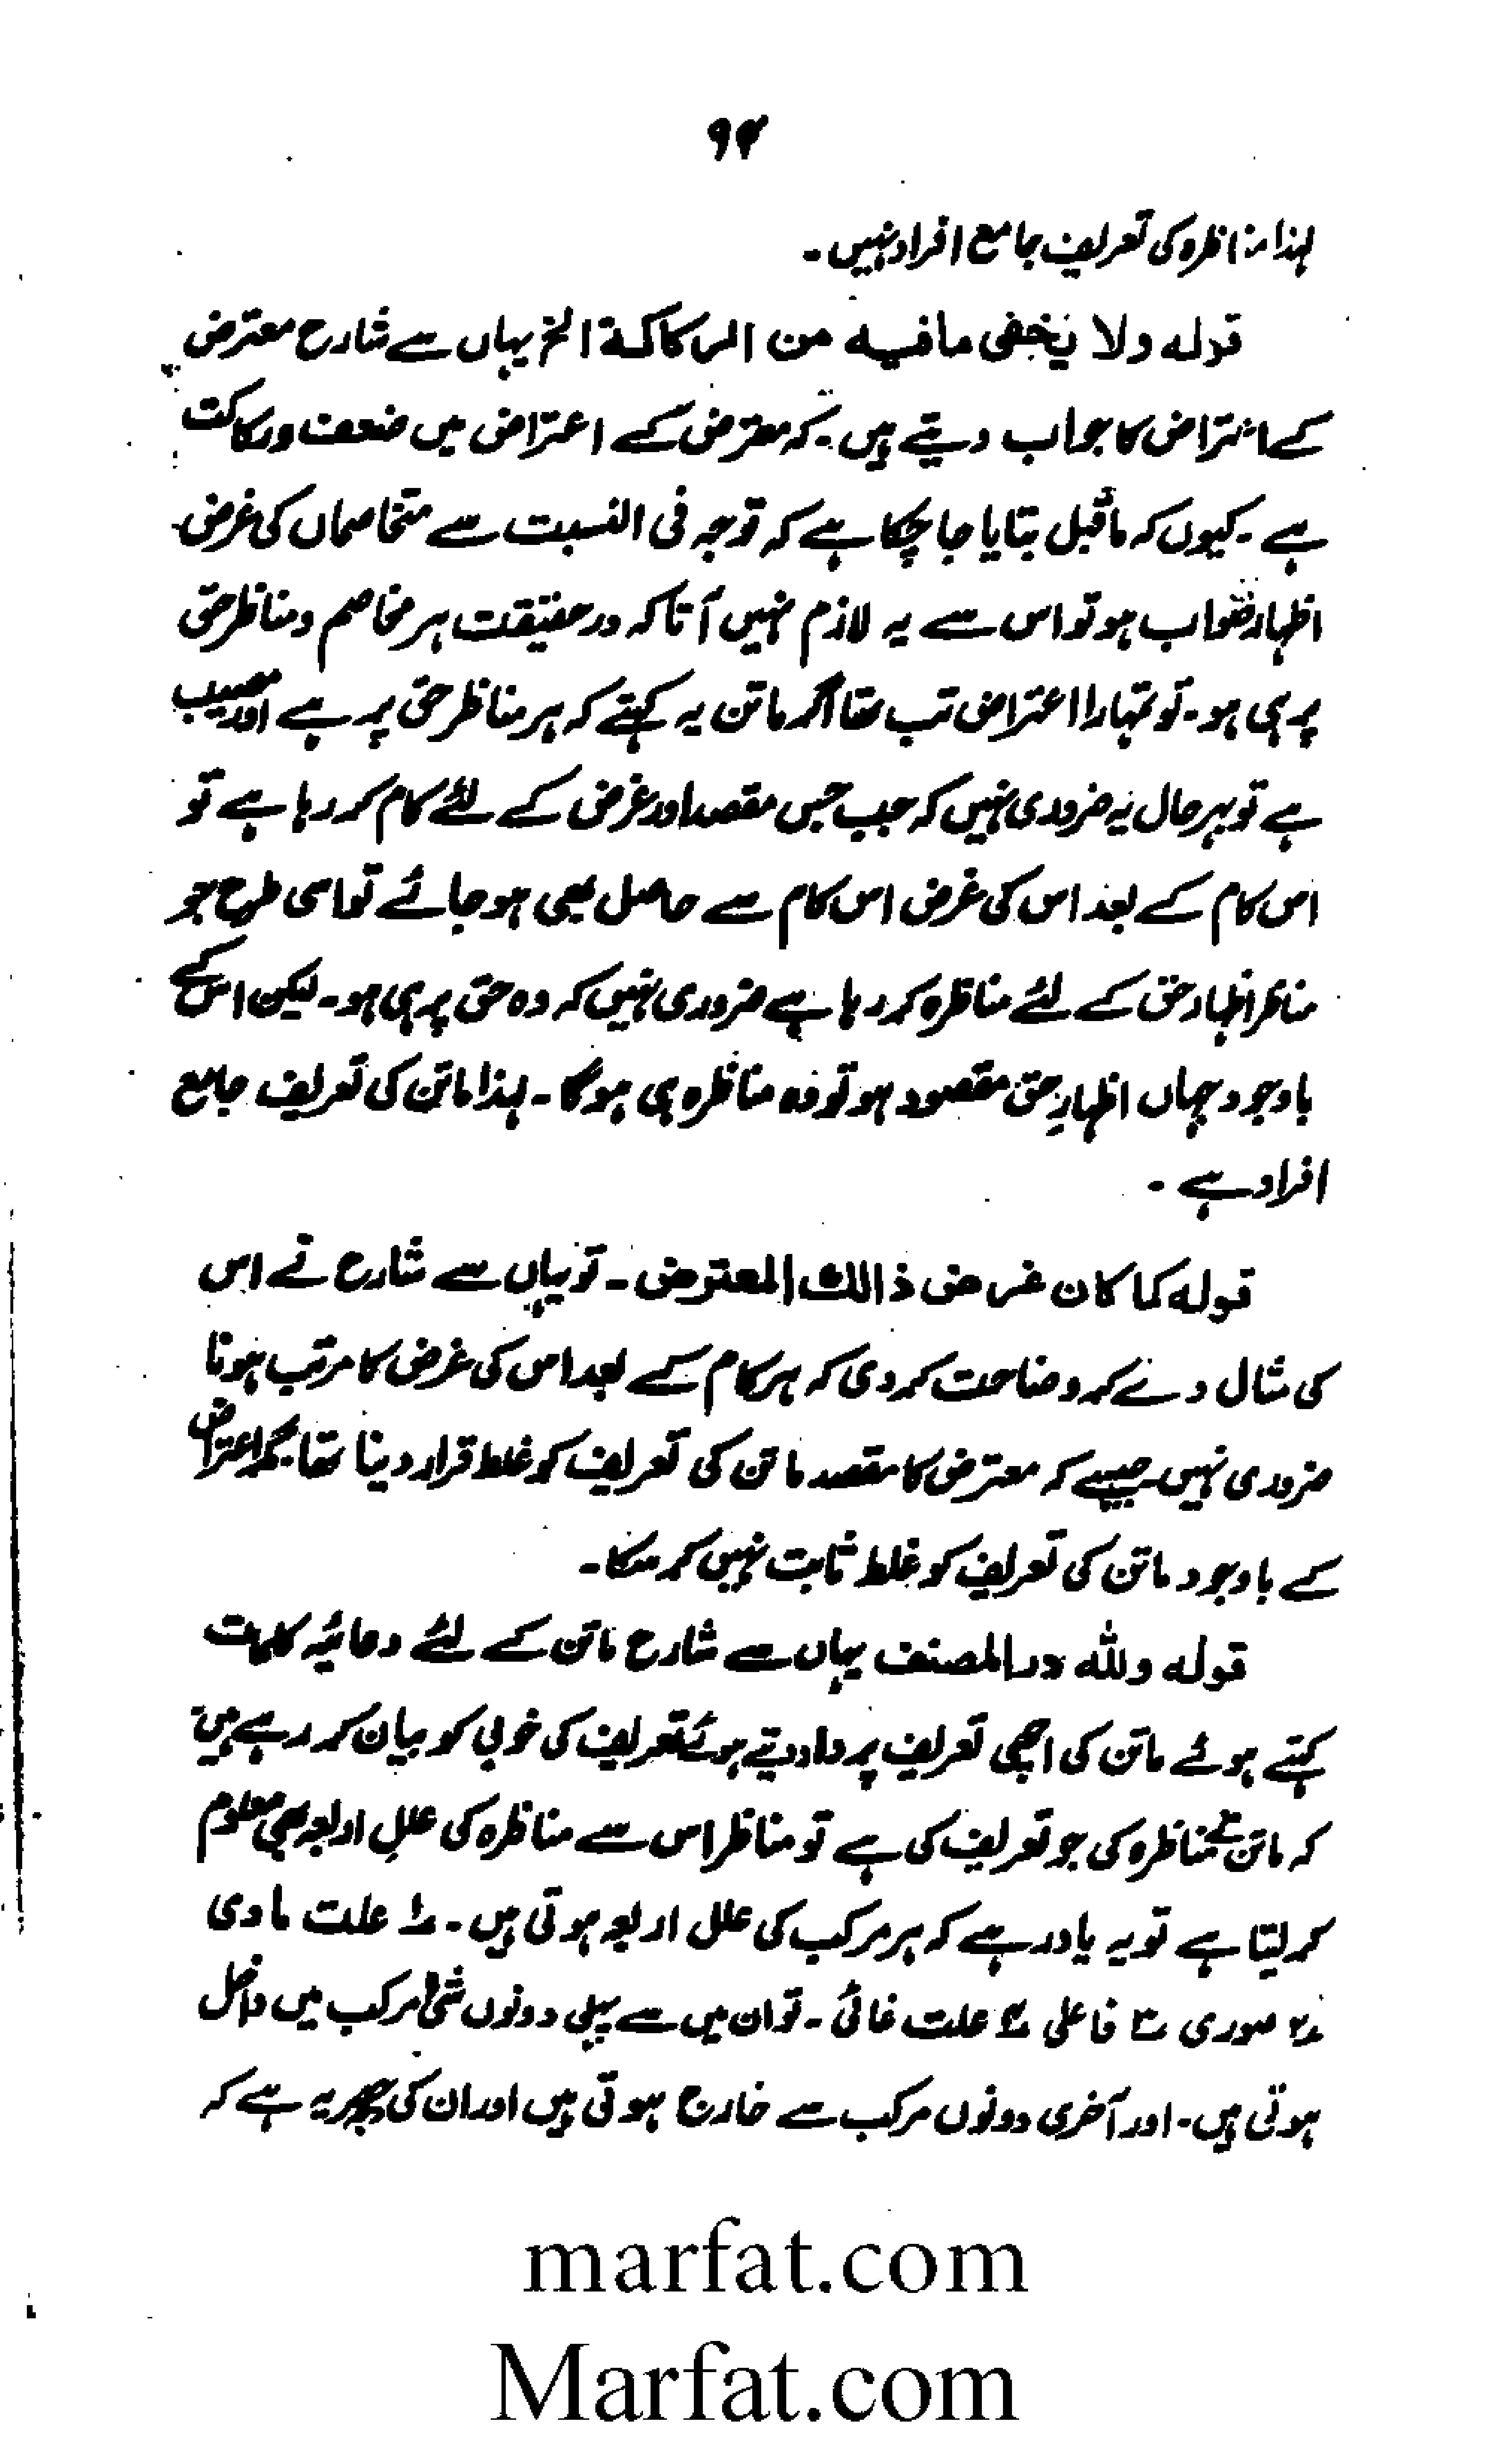 ۹۴
لہذا مناظرہ کی تعریف جامع افراد نہیں۔
قولہ ولا یخفی مافیہ من الرکاکة الخ یہاں سے شارح معترض
کے اعتراض کا جواب دیتے ہیں۔ کہ معترض کے اعتراض میں ضعف ورکاکت
ہے۔ کیوں کہ ماقبل بتایا جا چکا ہے کہ توجہ فی النسبت سے متخاصماں کی غرض
اظہار صواب ہو تو اس سے یہ لازم نہیں آتا کہ درحقیقت ہر مخاصم ومناظر حق
پر ہی ہو۔ تو تمہارا اعتراض تب تھا اگر ماتن یہ کہتے کہ ہر مناظر حق پر ہے اور مصیب
ہے تو بہرحال یہ ضروری نہیں کہ جب جس مقصد اور غرض کے لئے کام کر رہا ہے تو
اس کام کے بعد اس کی غرض اس کام سے حاصل بھی ہو جائے تو اسی طرح جو
مناظر اظہار حق کے لئے مناظرہ کر رہا ہے ضروری نہیں کہ وہ حق پر ہی ہو۔ لیکن اس کے
باوجود جہاں اظہارِ حق مقصود ہو تو وہ مناظرہ ہی ہوگا۔ لہذا ماتن کی تعریف جامع
افراد ہے۔
قولہ کما کان غرض ذالک المعترض۔ تو یہاں سے شارح نے اس
کی مثال دے کر وضاحت کر دی کہ ہر کام کے بعد اس کی غرض کا مرتب ہونا
ضروری نہیں جیسے کہ معترض کا مقصد ماتن کی تعریف کو غلط قرار دینا تھا مگر اعتراض
کے باوجود ماتن کی تعریف کو غلط ثابت نہیں کر سکا۔
قولہ وللہ درالمصنف یہاں سے شارح ماتن کے لئے دعائیہ کلمات
کہتے ہوئے ماتن کی اچھی تعریف پر داد دیتے ہوئے تعریف کی خوبی کو بیان کر رہے ہیں
کہ ماتن نے مناظرہ کی جو تعریف کی ہے تو مناظر اس سے مناظرہ کی عللِ اربعہ بھی معلوم
کر لیتا ہے تو یہ یاد رہے کہ ہر مرکب کی علل اربعہ ہوتی ہیں۔ ۱ علت مادی
۲ صوری ۳ فاعلی ۴ علت غائی۔ تو ان میں سے پہلی دونوں شئ مرکب میں داخل
ہوتی ہیں۔ اور آخری دونوں مرکب سے خارج ہوتی ہیں اور ان کی یہ ہے کہ
marfat.com
Marfat.com